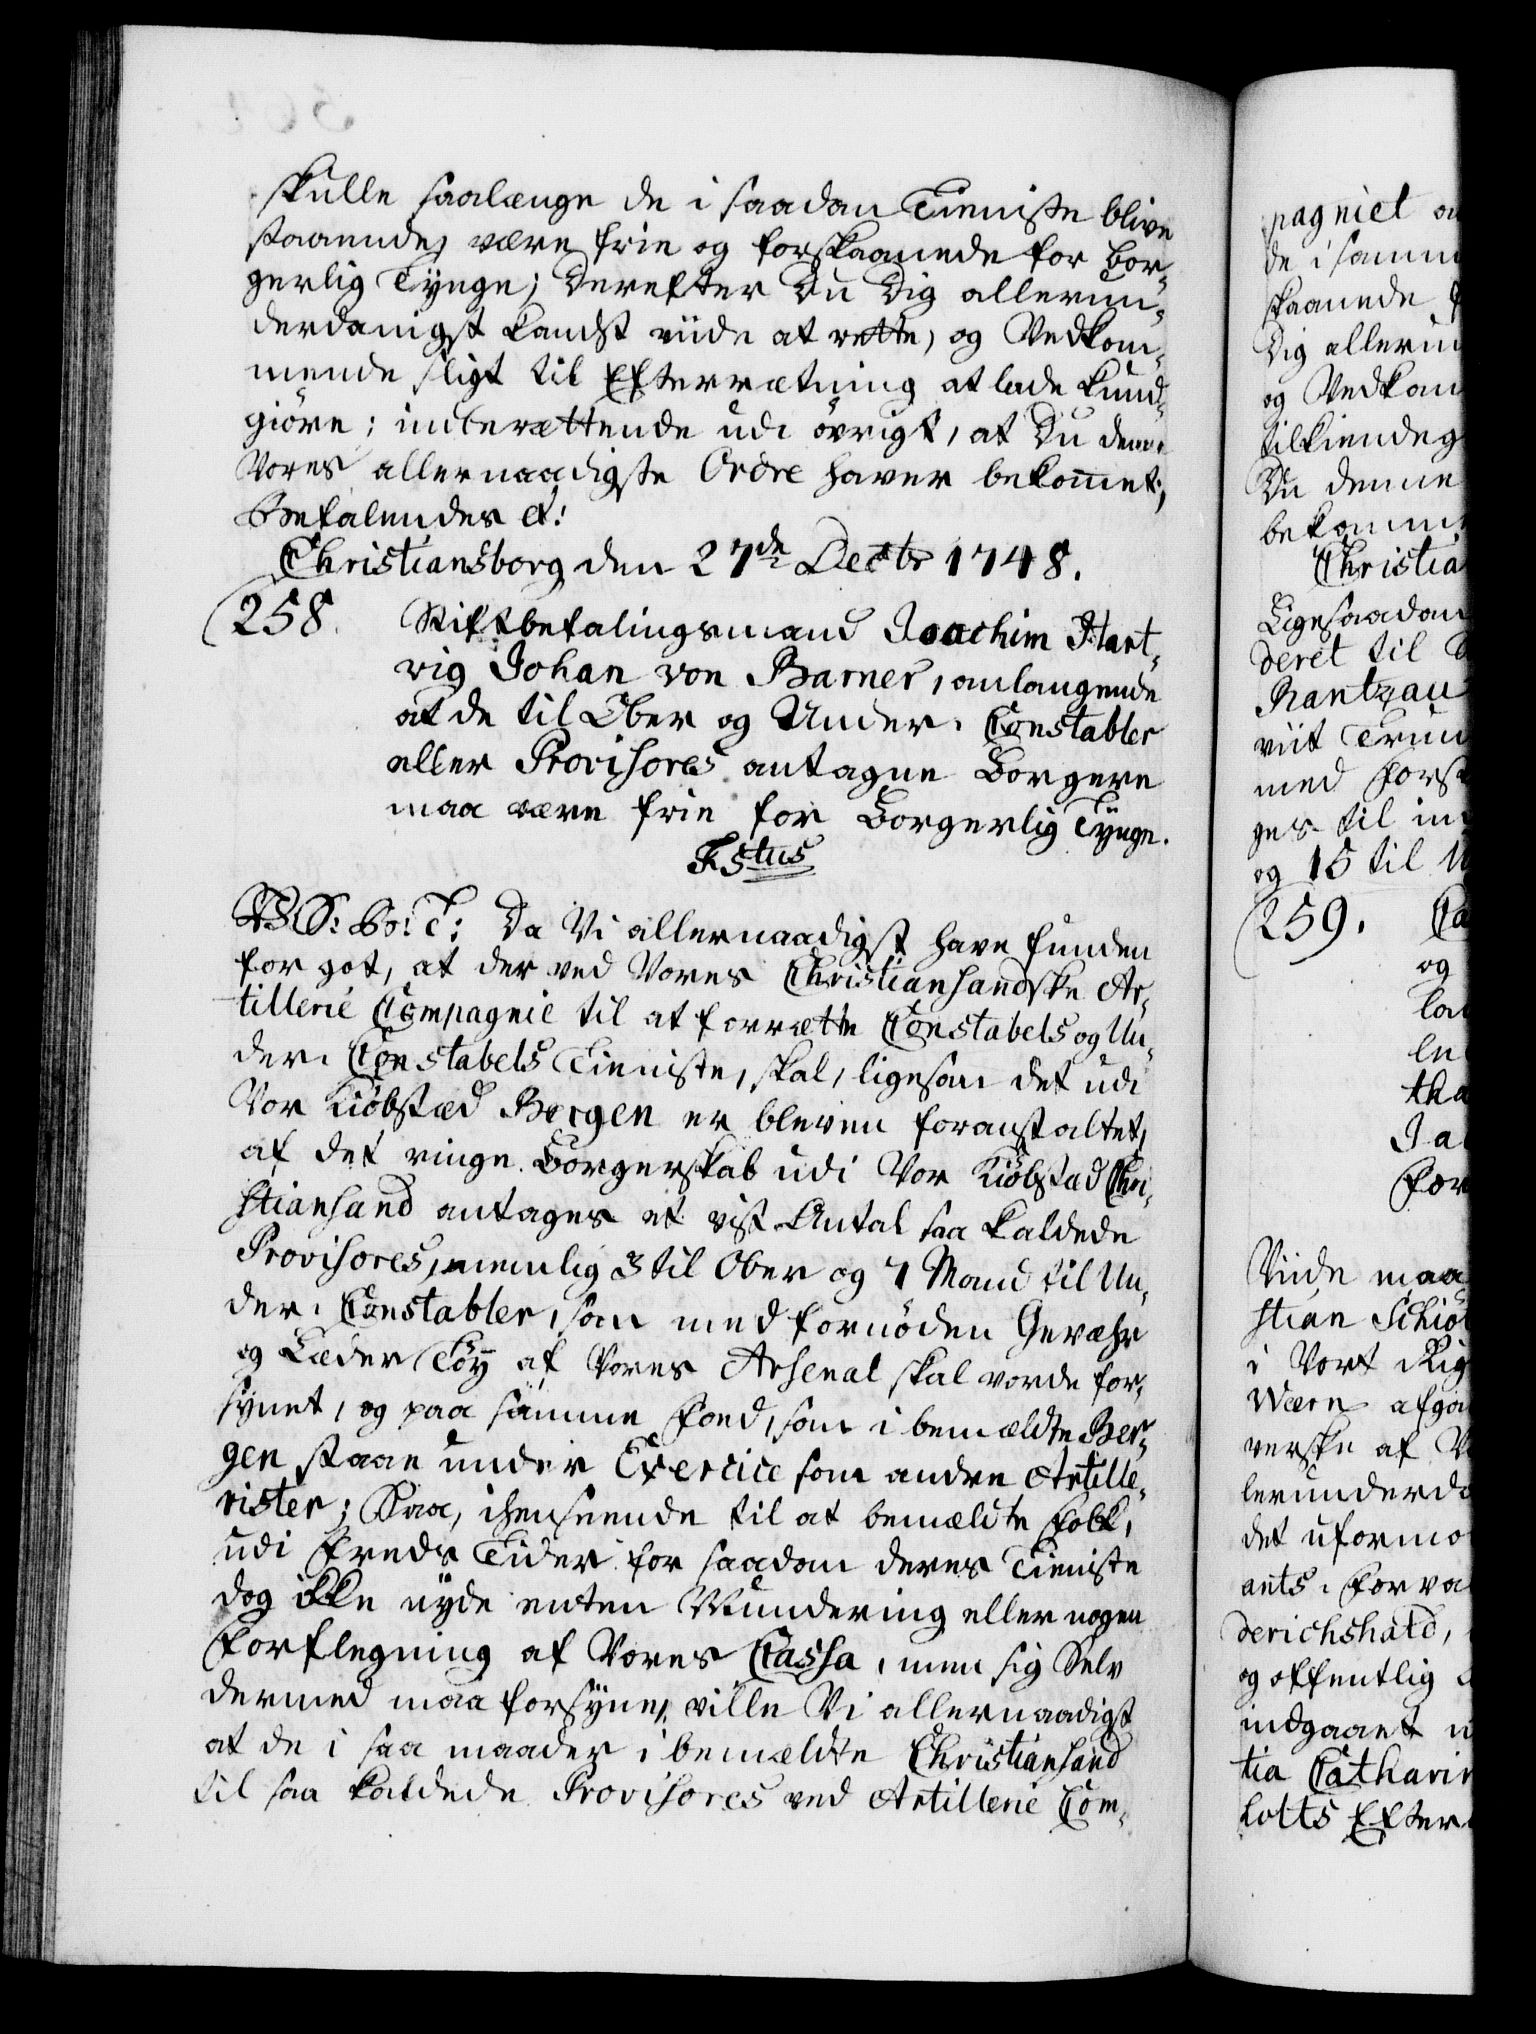 skulle saalænge de i saadan Tieniste blive
staaende, være frie og forskaanede for bor-
gerlig Tynge; Derefter Du Dig allerun-
derdanigst kandst viide at rette, og Vedkom-
mende sligt til Efterrætning at lade kund-
giöre; inberættende udi övrigt, at Du denne
Vores allernaadigste Ordre haver bekommet,
Befalendes et:
Christiansborg den 27de Decbr 1748.
258. Stiftbefalingsmand Joachim Hart-
vig Johan von Barner, anlangende
at de til Ober og Under-Constabler
eller Provisores antagne Borgere
maa være frie for Borgerlig Tynge.
F5tus
V S: Bo: T: Da Vi allernaadigst have funden
for got, at der ved Vores Christiansandske Ar-
tillerie Compagnie til at forrætte Constabels og Un-
der-Constabels Tieniste, skal, ligesom det udi
Vor Kiöbstæd Bergen er bleven foranstaltet,
af det ringe Borgerskab udi Vor Kiöbstad Chri-
stiansand antages et vist Antal saa kaldede
Provisores, nemlig 3 til Ober og 7 Mand til Un-
der-Constabler, som med fornöden Gevæhr
og Læder Töy af Vores Arsenal skal vorde for-
synet, og paa samme Fond, som i bemældte Ber-
gen staae under Exercice som andre Artille-
rister; Saa, i henseende til at bemældte Folk,
udi Freds Tider for saadan deres Tieniste
dog ikke nyde enten Mundering eller nogen
Forflegning af Vores Cassa, men sig Selv
dermed maa forsyne, ville Vi allernaadigst
at de i saa maader i bemældte Christiansand
til saa kaldede Provisores ved Artillerie Com-
pagniet
de i samm
skaanede
Dig allerun
og Vedkom
tilkiendeg
Du denne
bekomme
Christia
Ligesaadan
deret til
Rantzau
viit Trun
med Forsk
ges til
og 15 til
259.
og
la
en
tha
Ja
For
Viide maa
stian Schiöt
i Vort Rig
Wærn afga
verske af
lerunderda
det uformo
ants. Forva
derichshald,
og offentlig
indgaaet
tia Catharin
lotts Efter